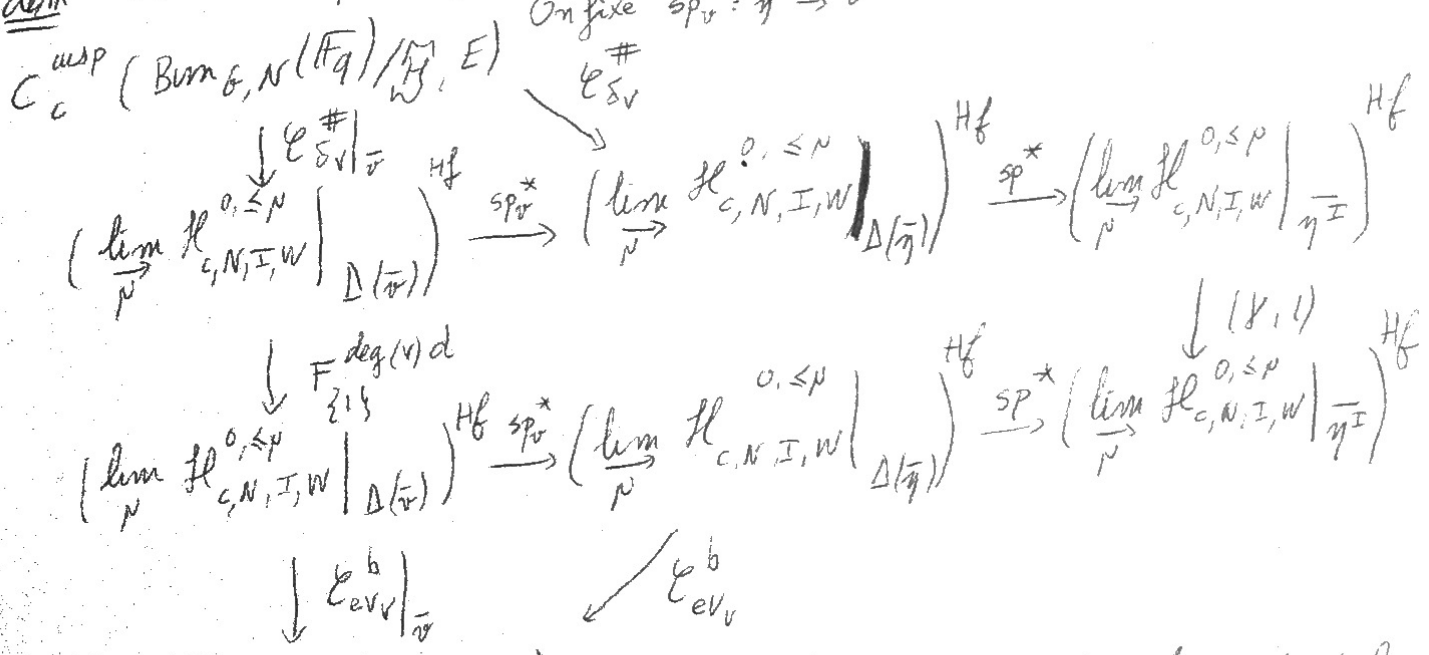 dém On fixe sp_v : η̄ → v̄
C_c^{cusp} ( Bun_{G,N}(F_q)/Ξ, E) 𝒞^#_{δ_v}
↓ 𝒞^#_{δ_v}|_{v̄}
( lim_{→μ} ℋ^{0,≤μ}_{c,N,I,W} |_{Δ(v̄)} )^{Hf} —sp_v^*→ ( lim_{→μ} ℋ^{0,≤μ}_{c,N,I,W} |_{Δ(η̄)} )^{Hf} —sp^*→ ( lim_{→μ} ℋ^{0,≤μ}_{c,N,I,W} |_{η̄^I} )^{Hf}
↓ F^{deg(v)d}_{{1}} ↓ (γ,1)
( lim_{→μ} ℋ^{0,≤μ}_{c,N,I,W} |_{Δ(v̄)} )^{Hf} —sp_v^*→ ( lim_{→μ} ℋ^{0,≤μ}_{c,N,I,W} |_{Δ(η̄)} )^{Hf} —sp^*→ ( lim_{→μ} ℋ^{0,≤μ}_{c,N,I,W} |_{η̄^I} )^{Hf}
↓ 𝒞^b_{ev_v}|_{v̄} ↙ 𝒞^b_{ev_v}